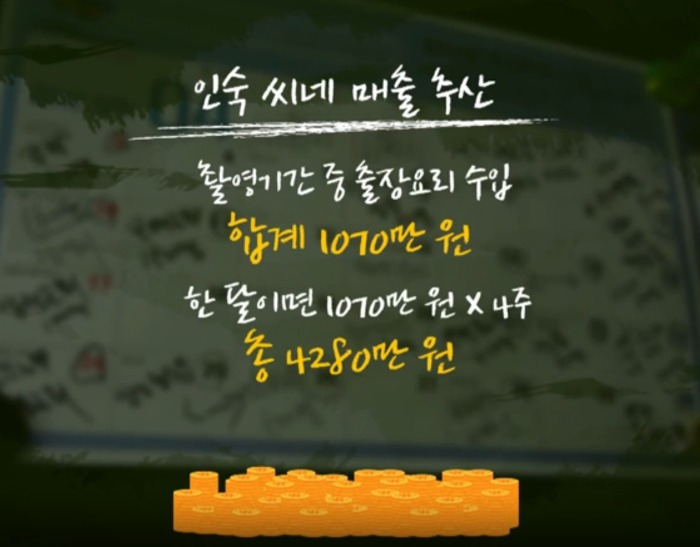 인숙 씨네 매출 추산
촬영기간 중 출장요리 수입
합계 1070만 원
한 달이면 1070만 원 X 4주
총 4280만 원